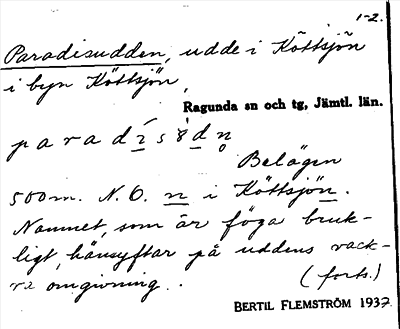 1-2.
Paradisudden, udde i Köttsjön
i byn Köttsjön,
Ragunda sn och tg, Jämtl. län.
paradísŏ̀dn̥
Belägen
500 m. N.O. n i Köttsjön.
Namnet, som är föga bruk-
ligt, hänsyftar på uddens vack-
ra omgivning.
(forts.)
BERTIL FLEMSTRÖM 1937